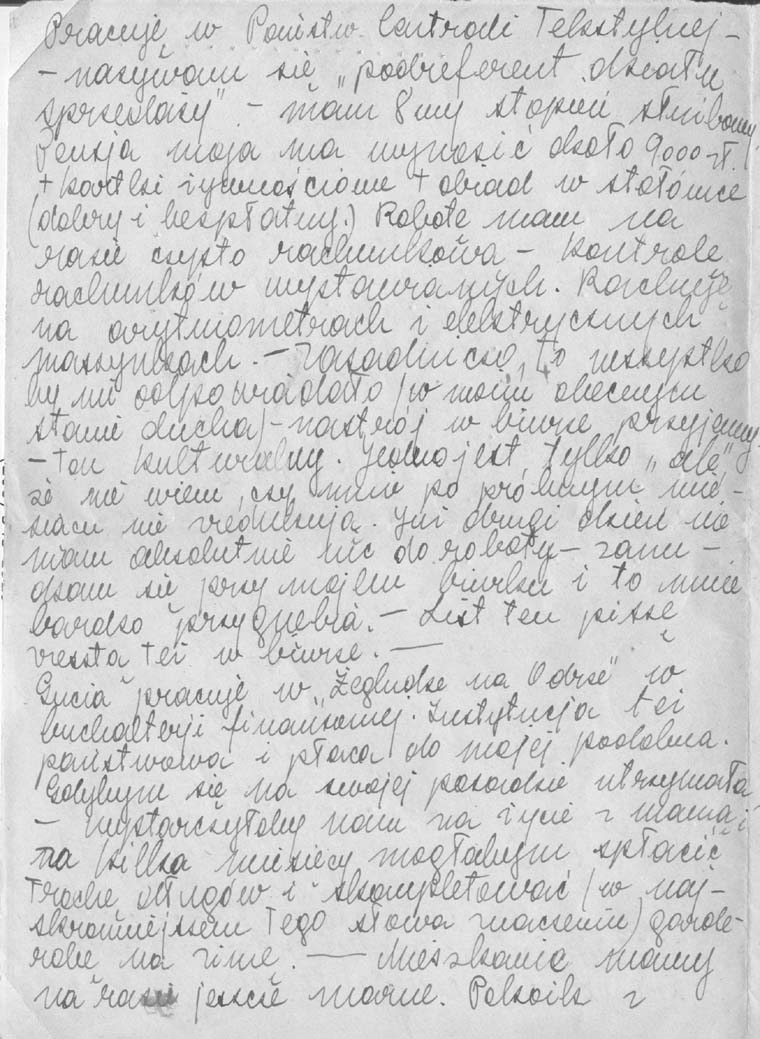 Pracuję w Państw. Centrali Tekstylnej –
– nazywam się „podreferent działu
sprzedaży" – mam 8my stopień służbowy.
Pensja moja ma wynosić około 9000 zł.
+ kartki żywnościowe + obiad w stołówce
(dobry i bezpłatny.) Robotę mam na
razie czysto rachunkową – kontrolę
rachunków wystawianych. Rachuję
na arytmometrach i elektrycznych
maszynkach. – Zasadniczo, to wszystko
by mi odpowiadało (w moim obecnym
stanie ducha) – nastrój w biurze przyjemny
– ton kulturalny. Jedno jest tylko „ale",
że nie wiem, czy mnie po próbnym mie-
siącu nie zredukują. Już drugi dzień nie
mam absolutnie nic do roboty – zanu-
dzam się przy mojem biurku i to mnie
bardzo przygnębia. – List ten piszę
zresztą też w biurze. —
Gucia pracuje w „Żegludze na Odrze" w
buchalterji finansowej. Instytucja też
państwowa i płaca do mojej podobna.
Gdybym się na swojej posadzie utrzymała
– wystarczyłoby nam na życie z mamą i
za kilka miesięcy mogłabym spłacić
trochę długów i skompletować (w naj-
skromniejszem tego słowa znaczeniu) garde-
robę na zimę. — Mieszkanie mamy
na razie jeszcze marne. Pokoik z